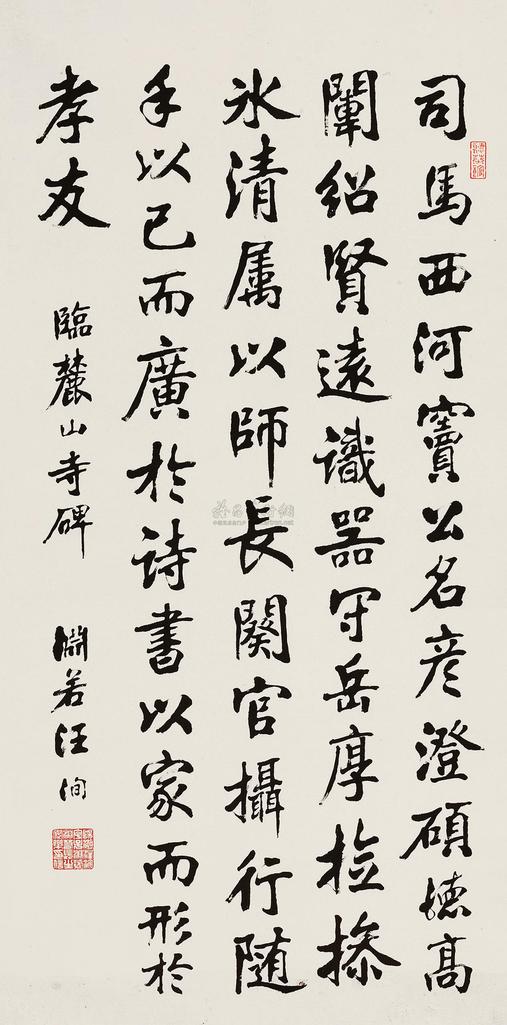 司馬西河竇公名彦澄碩德髙
闡紹賢遠識器守岳厚撿操
氷清属以師長闕官攝行随
手以已而廣於詩書以家而形於
孝友
臨麓山寺碑
淵若汪洵